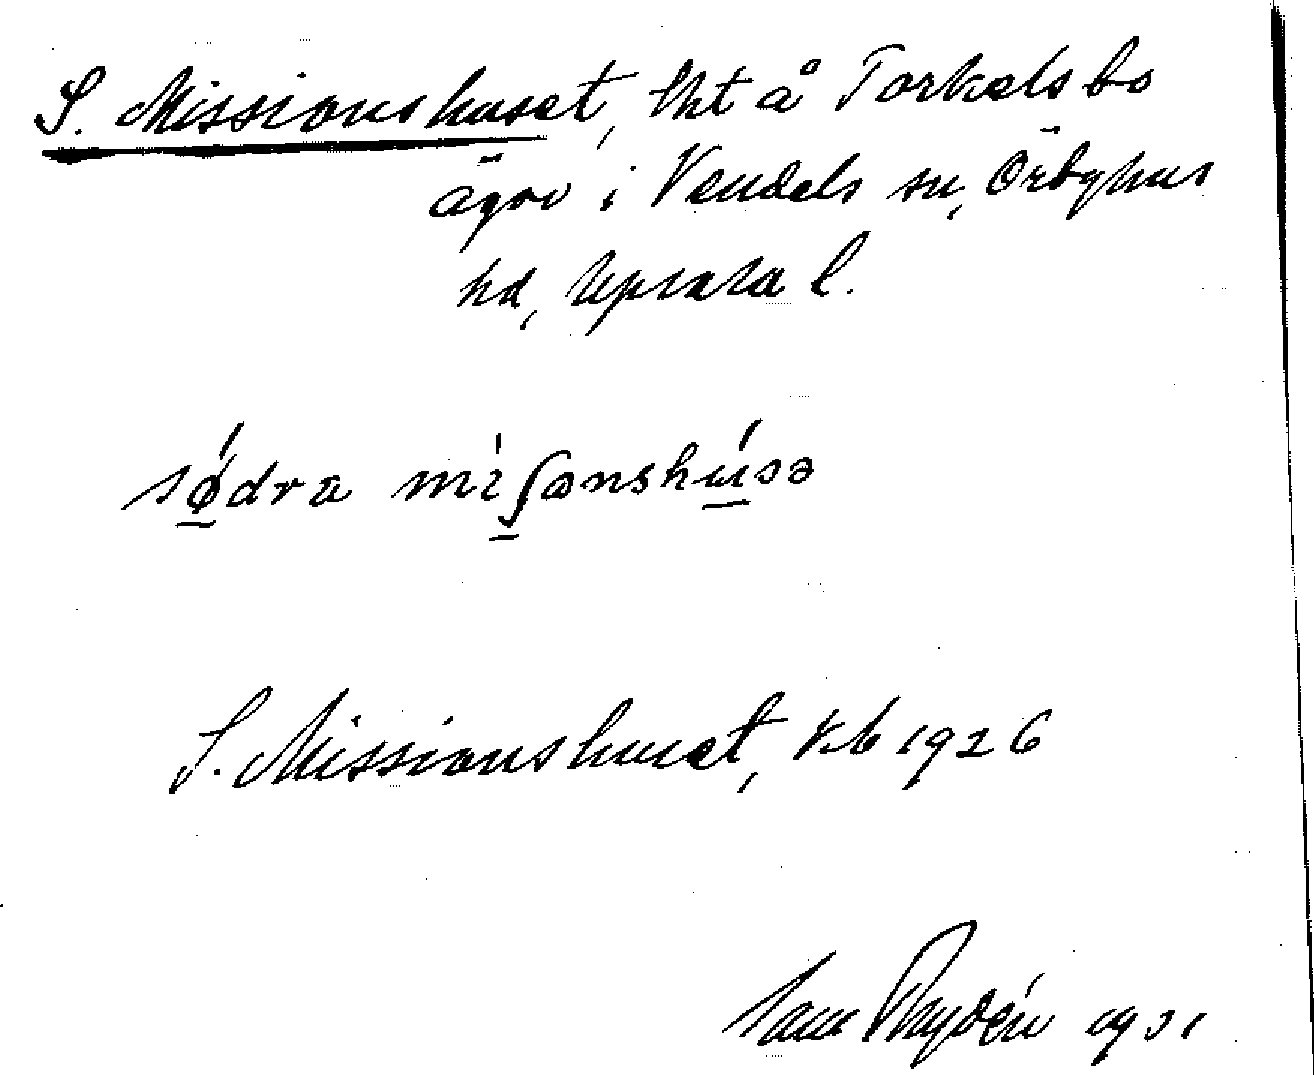 S. Missionshuset, lht å Torkelsbo
ägor i Vendels sn, Örbyhus
hd, Upsala l.
sǿ̲dra mı̀ʃ̲ɷnshú̲sə
S. Missionshuset, kb 1926
Sam Rydén 1931